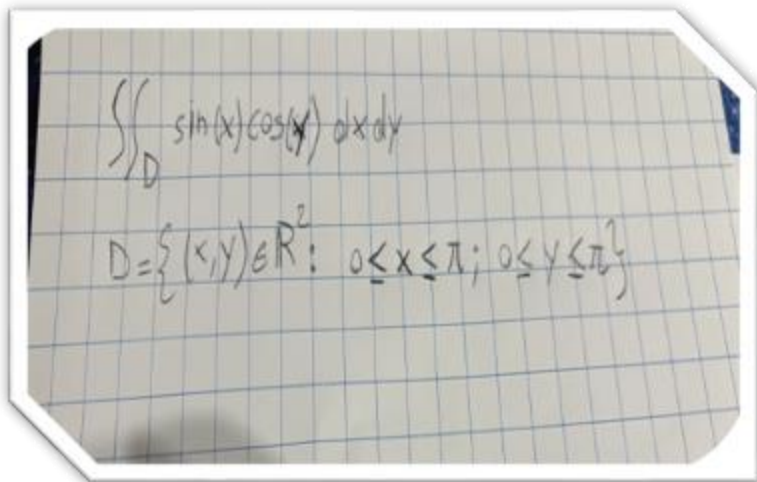 ∬_D sin(x) cos(y) dx dy
D = {(x,y) ∈ ℝ² : 0 ≤ x ≤ π ; 0 ≤ y ≤ π}